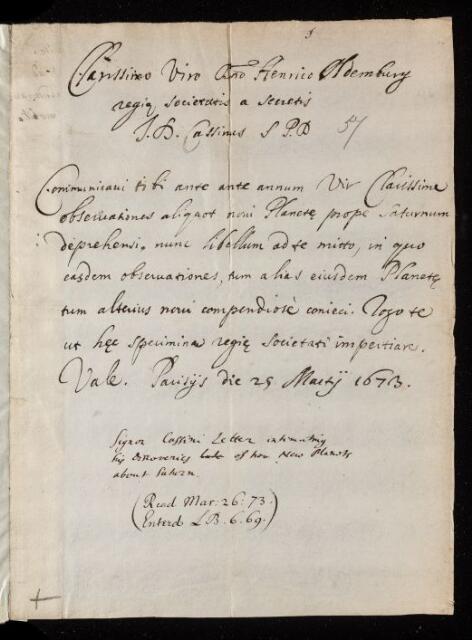 Clarissimo Viro Dño Henrico Oldemburg
regię societatis a secretis
J. D. Cassinus S P. D 57
Communicavi tibi ante ante annum Vir Clarissime
observationes aliquot novi Planetę prope Saturnum
deprehensi. nunc libellum ad te mitto, in quo
easdem observationes, tum alias eiusdem Planetę
tum alterius novi compendiosè conieci. Rogo te
ut hęc specimina regię societati impertiare.
Vale. Parisijs die 25 Martij 1673.
Signor Cassini Letter intimating
his discoveries of new Planets
about Saturn.
(Read Mar. 26. 73.
Enterd LB. 6. 69.)